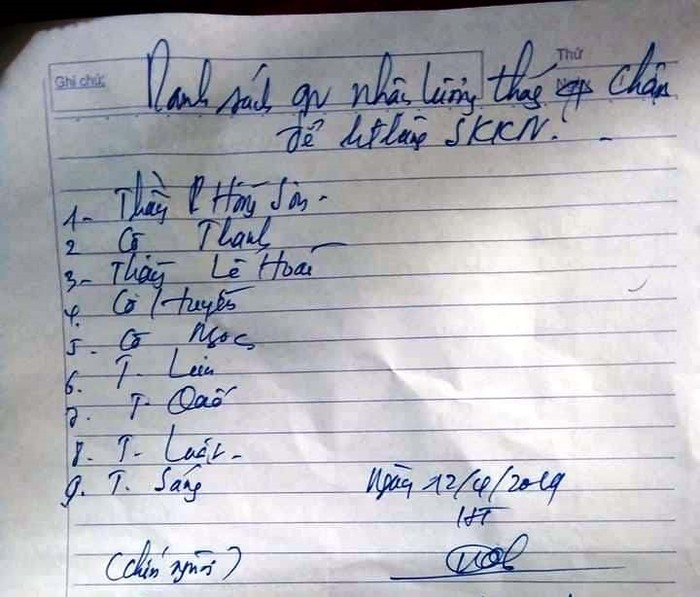 Ghi chú: Thứ
Danh sách gv nhân lương tháng chậm
để hthàng SKKN.
1- Thầy P Hồng Sơn -
2 Cô Thanh
3- Thầy Lê Hoài
4. Cô Huyền
5. Cô Ngọc
6. T.
7. T.
8. T. Luật -
9. T. Sáng
Ngày 12/4/2019
HT
(chín người)